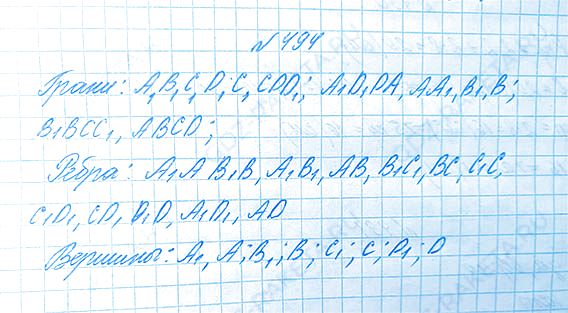 № 494
Грани: A₁B₁C₁D₁; C₁CDD₁; A₁D₁DA, AA₁, B₁, B;
B₁BCC₁, ABCD;
Ребра: A₁A B₁B, A₁B₁, AB, B₁C₁, BC, C₁C,
C₁D₁, CD, D₁D, A₁D₁, AD
Вершины: A₁, A; B₁; B; C₁; C; D₁; D